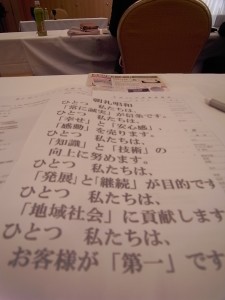 朝礼唱和
ひとつ 私たちは、
「常に誠実」が信条です。
ひとつ 私たちは、
「幸せ」と「安心感」、
「感動」を売ります。
ひとつ 私たちは、
「知識」と「技術」の
向上に努めます。
ひとつ 私たちは、
「発展」と「継続」が目的です
ひとつ 私たちは、
「地域社会」に貢献します
ひとつ 私たちは、
お客様が「第一」です